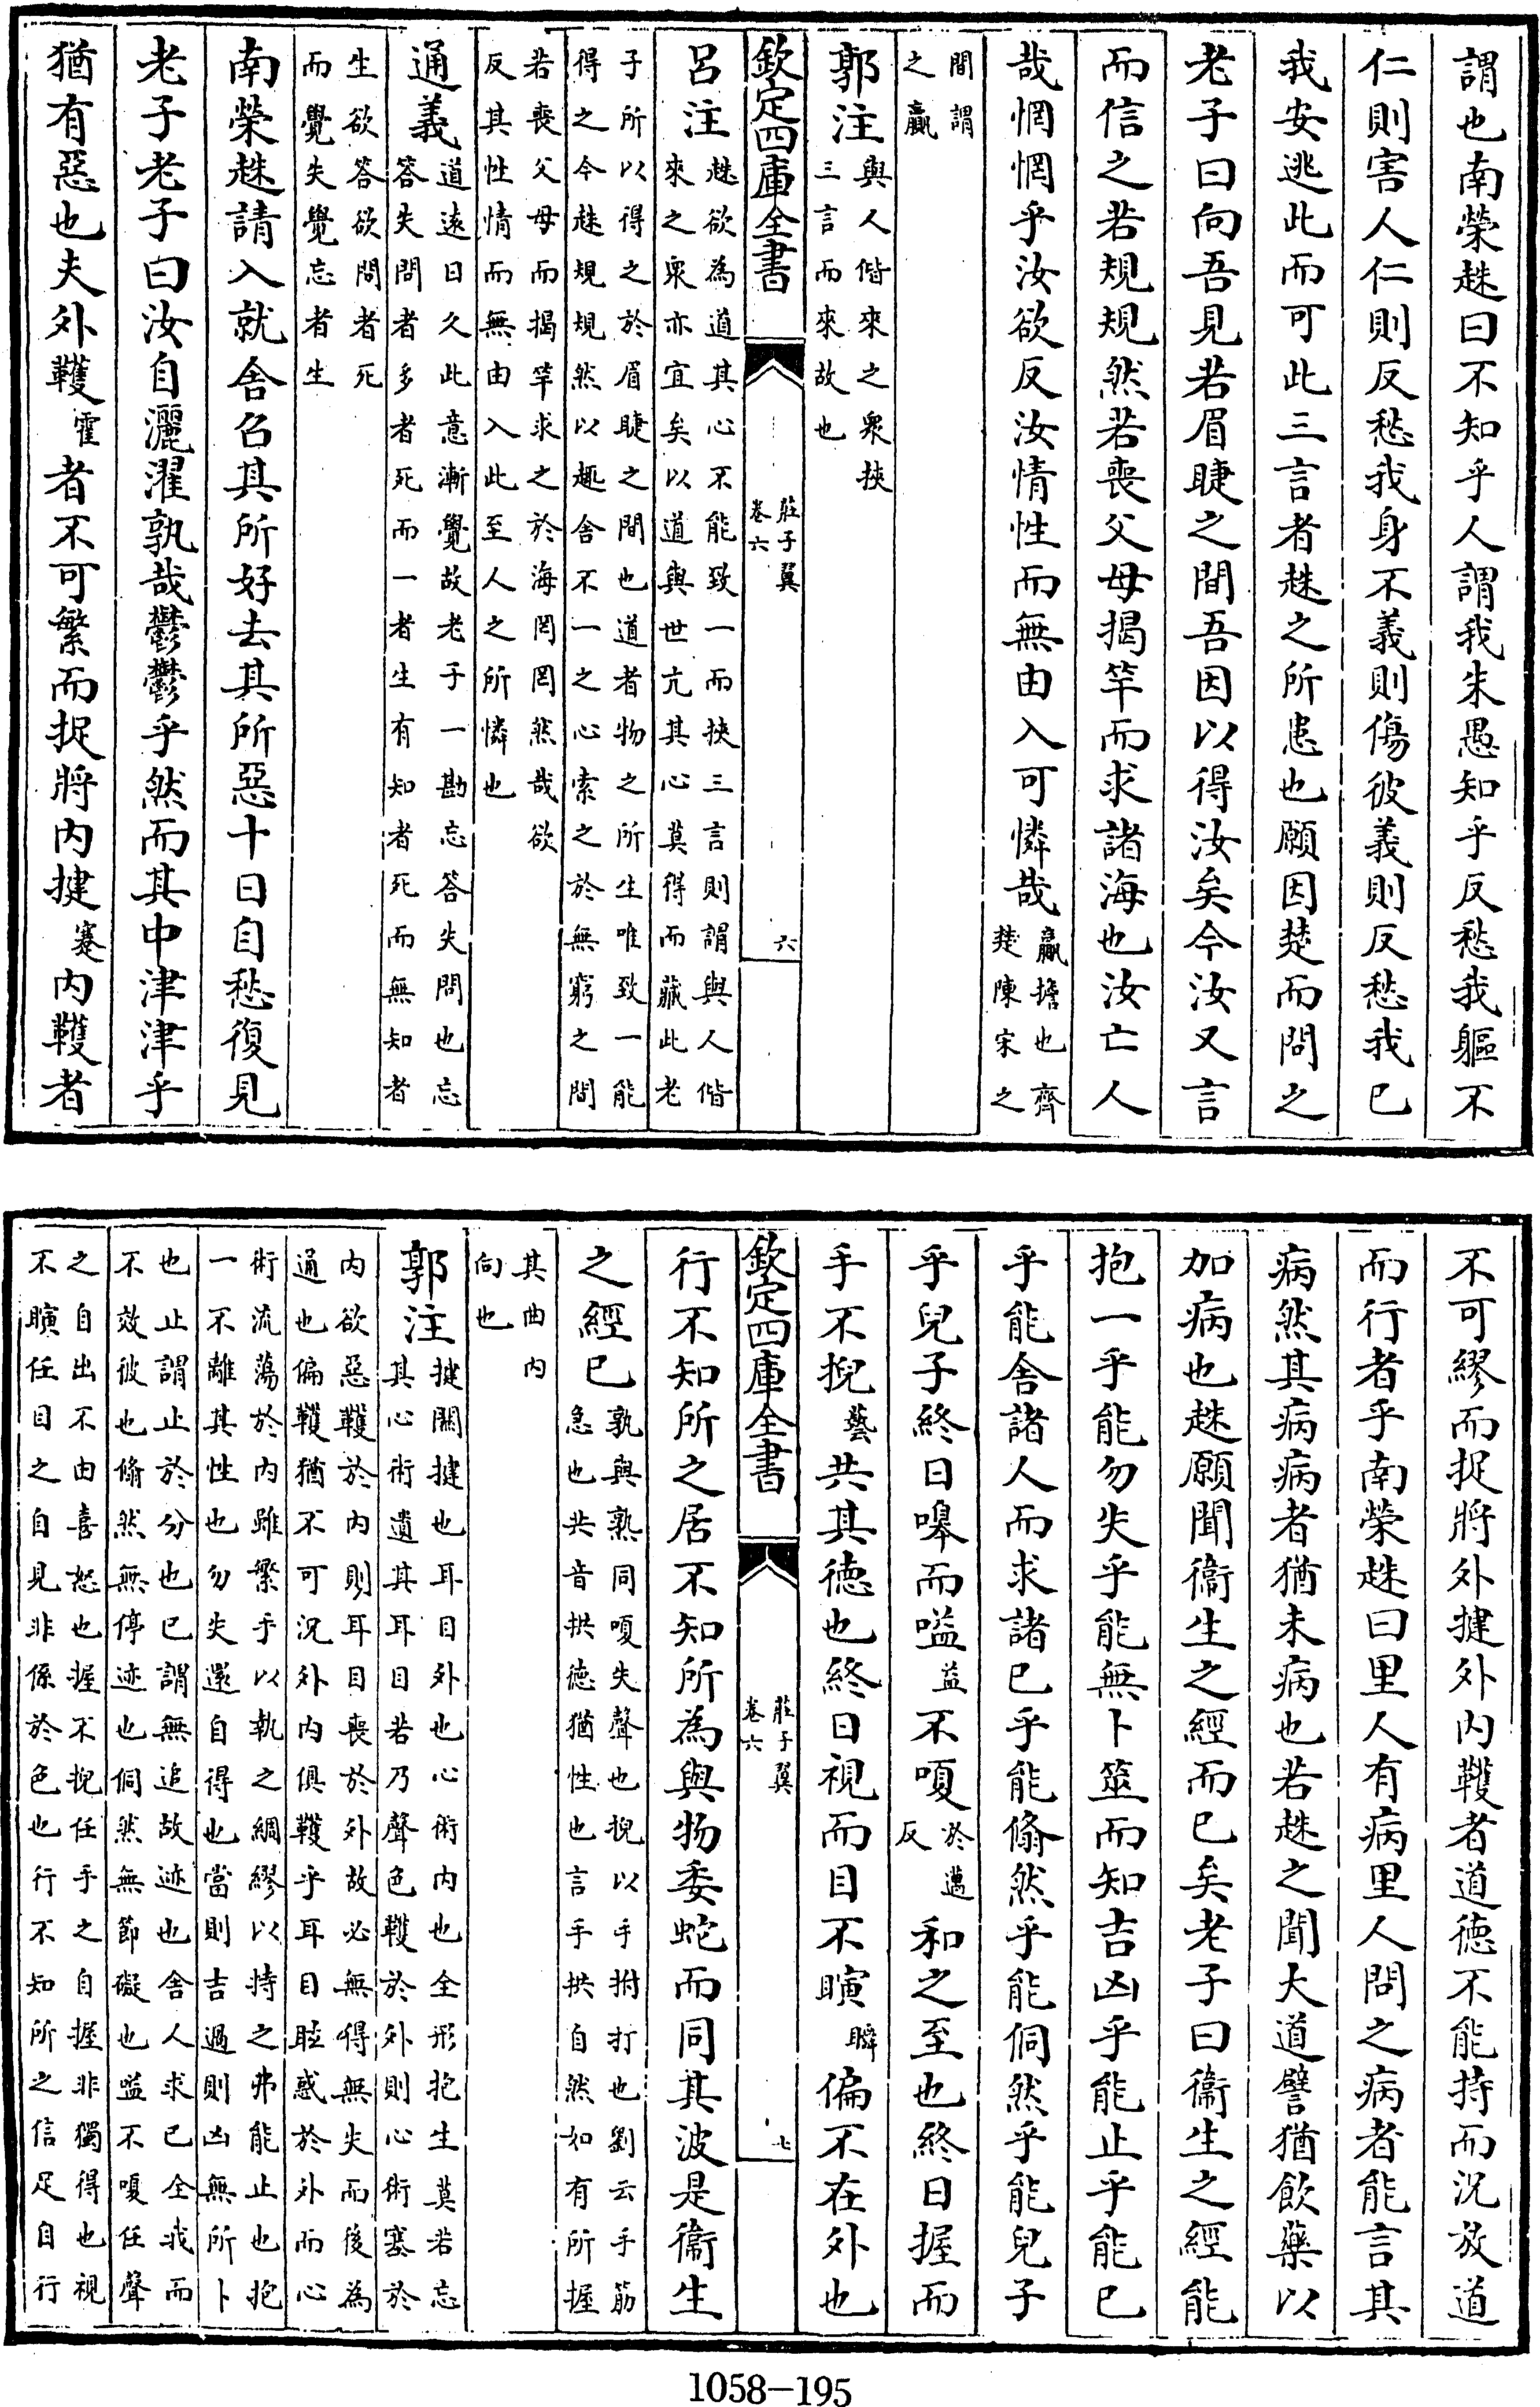 謂也南榮趎曰不知乎人謂我朱愚知乎反愁我軀不
仁則害人仁則反愁我身不義則傷彼義則反愁我已
我安逃此而可此三言者趎之所患也願因楚而問之
老子曰向吾見若眉睫之間吾因以得汝矣今汝又言
而信之若規規然若喪父母揭竿而求諸海也汝亡人
哉惘惘乎汝欲反汝情性而無由入可憐哉
贏擔也齊
楚陳宋之
間謂
之贏
郭注
與人偕來之衆挾
三言而來故也
欽定四庫全書
莊子翼
卷六
六
呂注
趎欲為道其心不能致一而挾三言則謂與人偕
來之衆亦宜矣以道與世亢其心莫得而藏此老
子所以得之於眉睫之間也道者物之所生唯致一能
得之今趎規規然以趣舍不一之心索之於無窮之間
若喪父母而揭竿求之於海罔罔然哉欲
反其性情而無由入此至人之所憐也
通義
道遠日久此意漸覺故老子一勘忘答失問也忘
答失問者多者死而一者生有知者死而無知者
生欲答欲問者死
而覺失覺忘者生
南榮趎請入就舍召其所好去其所惡十日自愁復見
老子老子曰汝自灑濯孰哉鬱鬱乎然而其中津津乎
猶有惡也夫外韄
霍
者不可繁而捉將内揵
蹇
内韄者
不可繆而捉將外揵外内韄者道德不能持而況放道
而行者乎南榮趎曰里人有病里人問之病者能言其
病然其病病者猶未病也若趎之聞大道譬猶飲藥以
加病也趎願聞衞生之經而已矣老子曰衞生之經能
抱一乎能勿失乎能無卜筮而知吉凶乎能止乎能已
乎能舍諸人而求諸已乎能翛然乎能侗然乎能兒子
乎兒子終日嘷而嗌
益
不嗄
於邁
反
和之至也終日握而
手不掜
藝
共其德也終日視而目不瞚
瞬
偏不在外也
欽定四庫全書
莊子翼
卷六
七
行不知所之居不知所為與物委蛇而同其波是衞生
之經已
孰與熟同嗄失聲也掜以手拊打也劉云手筋
急也共音拱德猶性也言手拱自然如有所握
其曲内
向也
郭注
揵關揵也耳目外也心術内也全形抱生莫若忘
其心術遺其耳目若乃聲色韄於外則心術塞於
内欲惡韄於内則耳目喪於外故必無得無失而後為
通也偏韄猶不可況外内俱韄乎耳目眩惑於外而心
術流蕩於内雖繁手以執之綢繆以持之弗能止也抱
一不離其性也勿失還自得也當則吉過則凶無所卜
也止謂止於分也已謂無追故迹也舍人求已全我而
不效彼也翛然無停迹也侗然無節礙也嗌不嗄任聲
之自出不由喜怒也握不掜任手之自握非獨得也視
不瞚任目之自見非係於色也行不知所之信足自行
1058-195